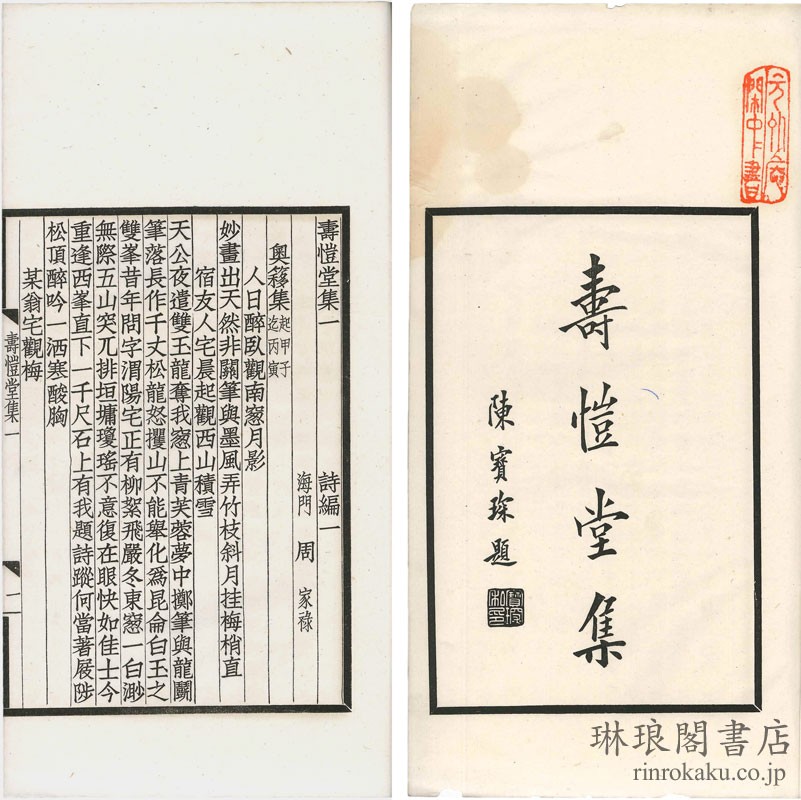 壽愷堂集
陳寶琛題
壽愷堂集一
詩編一
海門 周家祿
奧簃集 起甲子迄丙寅
人日醉臥觀南窻月影
妙畫出天然非關筆與墨風弄竹枝斜月挂梅梢直
宿友人宅晨起觀西山積雪
天公夜遣雙玉龍奪我窻上青芙蓉夢中擲筆與龍鬬
筆落長作千丈松龍怒攫山不能舉化爲昆侖白玉之
雙峯昔年問字渭陽宅正有柳絮飛嚴冬東窻一白渺
無際五山突兀排垣墉瓊瑤不意復在眼快如佳士今
重逢西峯直下一千尺石上有我題詩蹤何當著屐陟
松頂醉吟一洒寒酸胸
某翁宅觀梅
壽愷堂集一
一
琳琅閣書店
rinrokaku.co.jp